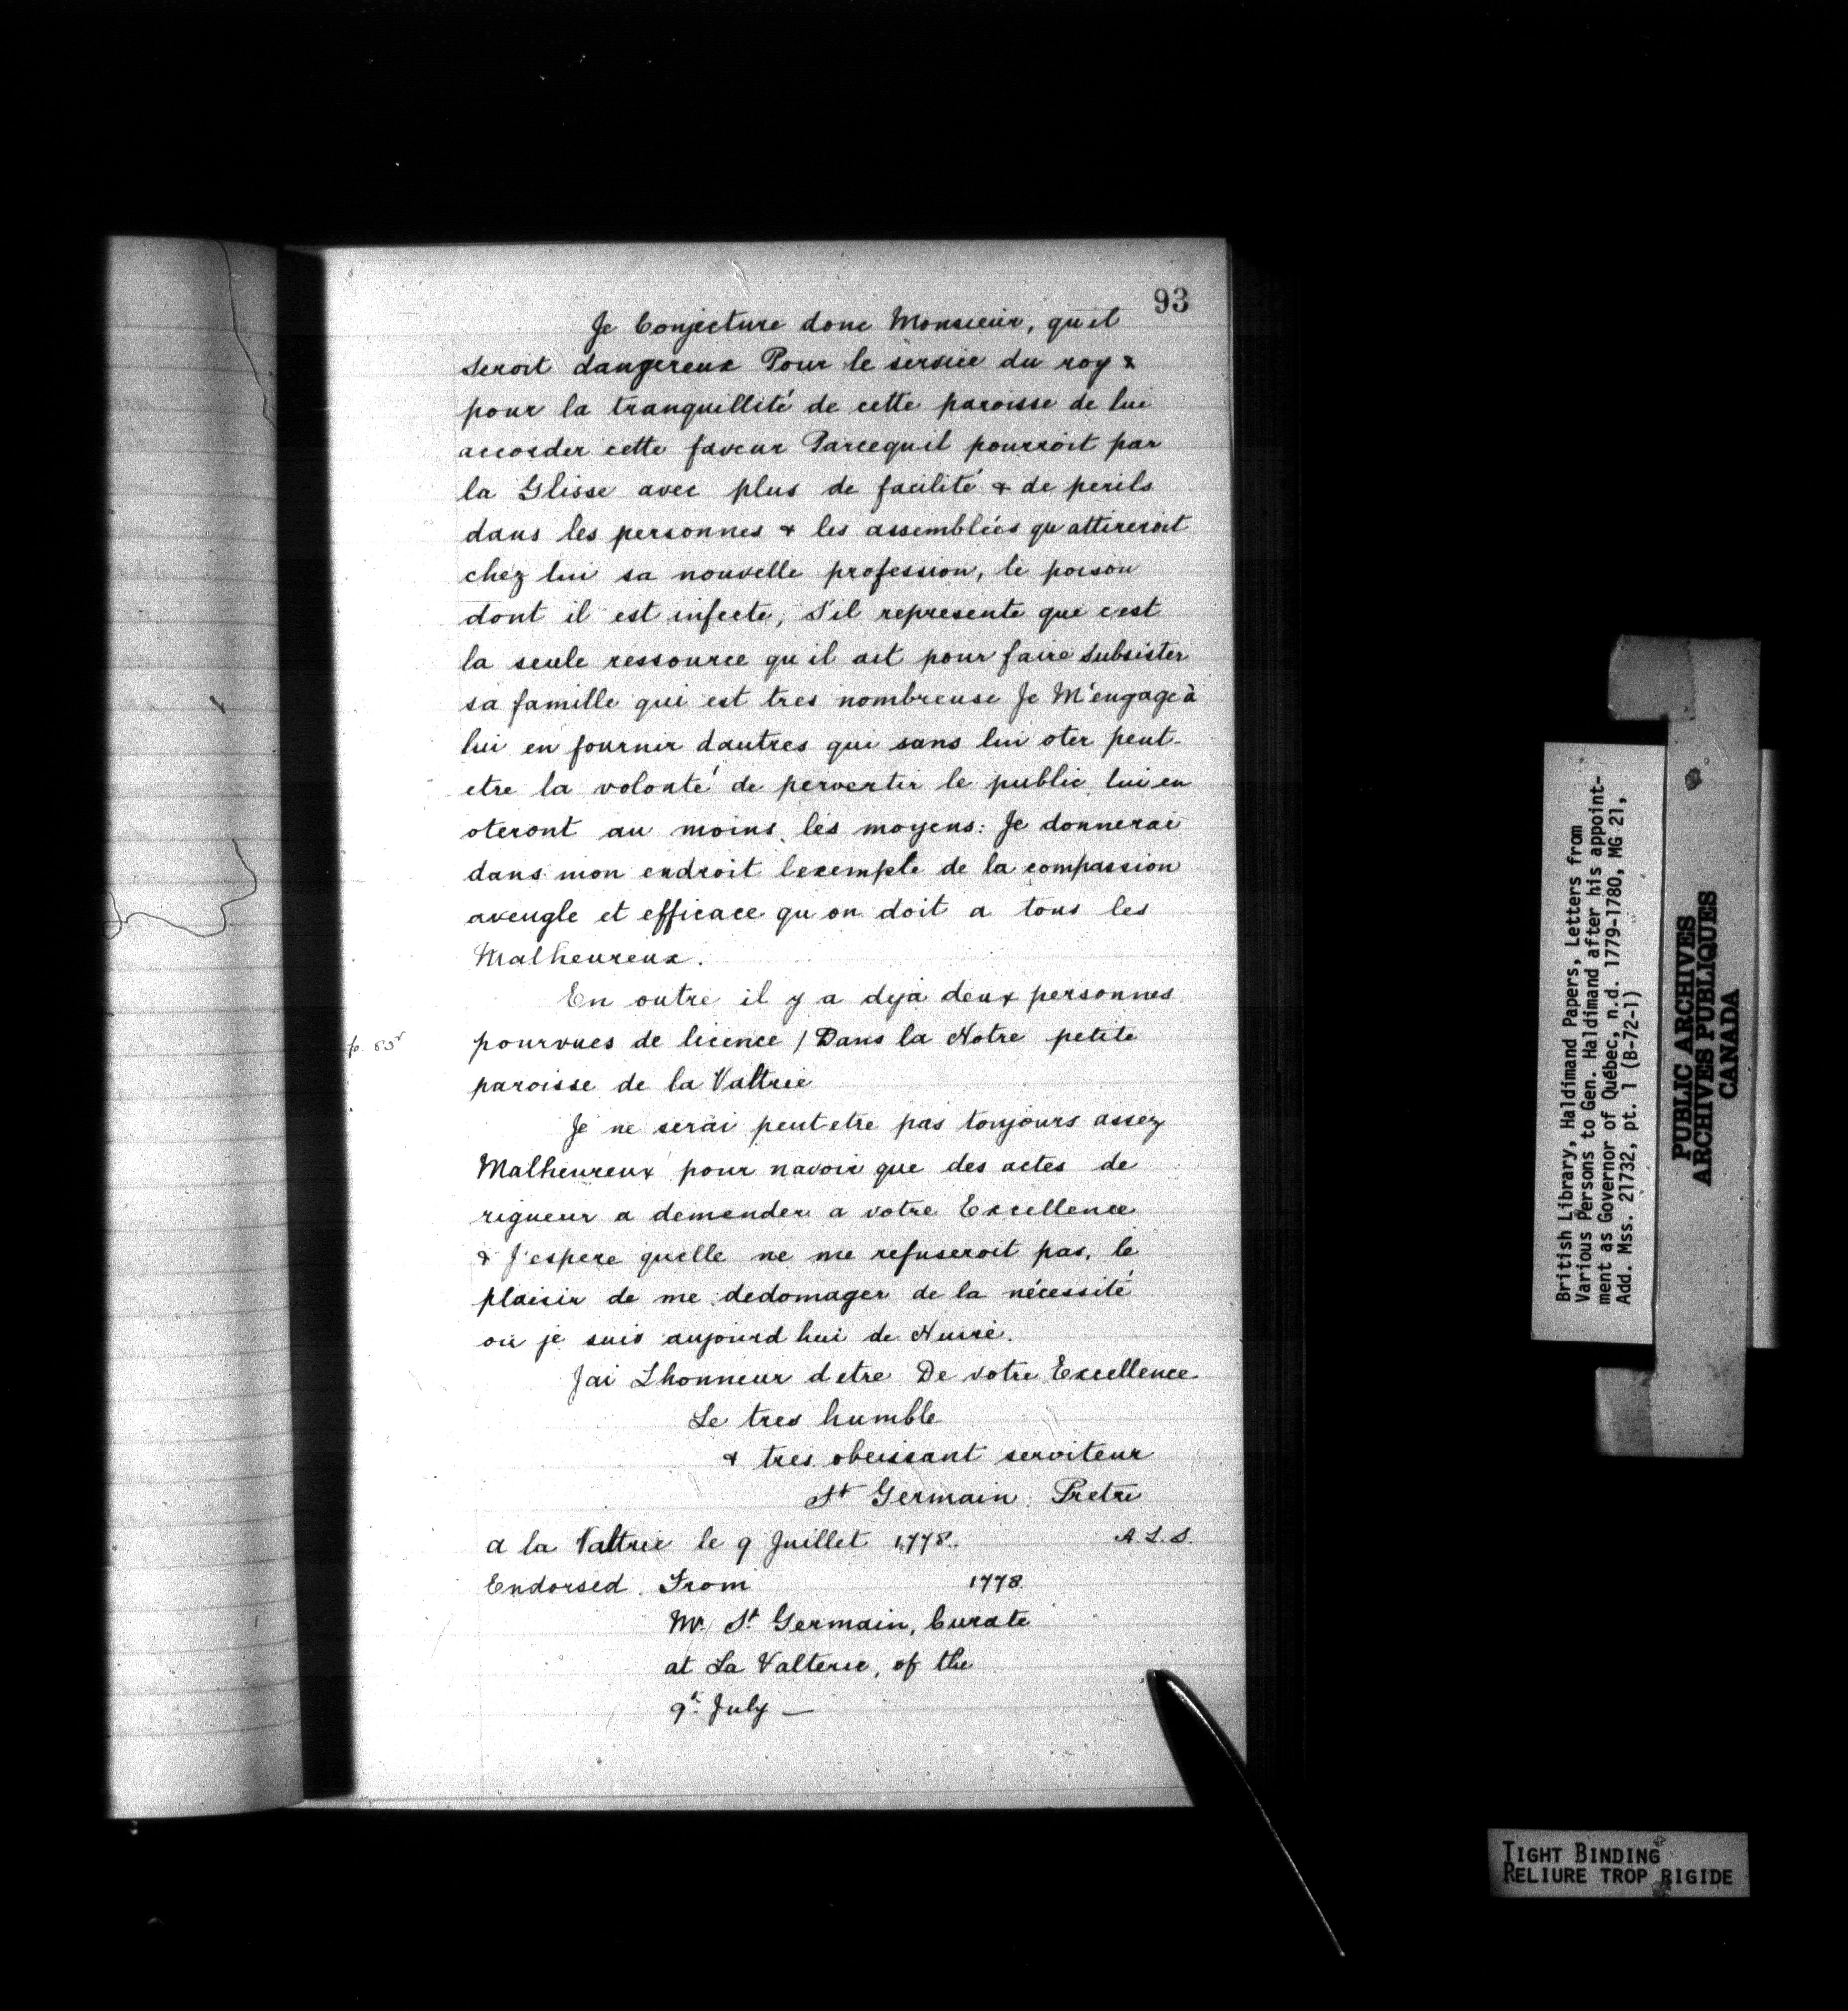 93
Je Conjecture donc Monsieur, quil
Seroit dangereux Pour le service du roy &
pour la tranquillité de cette paroisse de lui
accorder cette faveur Parcequil pourroit par
la Glisse avec plus de facilité & de perils
dans les personnes & les assemblées qu attireroit
chez lui sa nouvelle profession, le poison
dont il est infecte, S'il represente que c'est
la seule ressource qu il ait pour faire Subsister
sa famille qui est tres nombreuse Je M'engage à
lui en fournir dautres qui sans lui oter peut-
etre la volonté de pervertir le public, lui en
oteront au moins les moyens: Je donnerai
dans mon endroit lexemple de la compassion
aveugle et efficace qu on doit a tous les
Malheureux.
En outre il y a dejà deux personnes
pourvues de licence / Dans la Notre petite
paroisse de la Valtrie
Je ne serai peut etre pas toujours assez
Malheureux pour navoir que des actes de
rigueur a demender a votre Excellence
& J'espere quelle ne me refuseroit pas, le
plaisir de me dedomager de la nécessité
ou je suis aujourd hui de Nuire.
Jai Lhonneur d etre De votre Excellence
Le tres humble
& tres obeissant serviteur
St Germain Pretre
a la Valtrie le 9 Juillet 1778. A. L. S.
Endorsed. From 1778.
Mr. St Germain, Curate
at La Valterie, of the
9th July —
British Library, Haldimand Papers, Letters from
Various Persons to Gen. Haldimand after his appoint-
ment as Governor of Québec, n.d. 1779-1780, MG 21,
Add. Mss. 21732, pt. 1 (B-72-1)
PUBLIC ARCHIVES
ARCHIVES PUBLIQUES
CANADA
TIGHT BINDING
RELIURE TROP RIGIDE